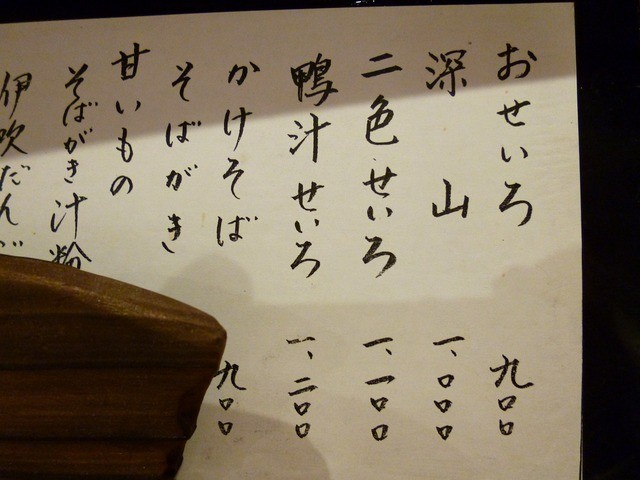 おせいろ 九〇〇
深山 一、〇〇〇
二色せいろ 一、一〇〇
鴨汁せいろ 一、二〇〇
かけそば 九〇〇
そばがき
甘いもの
そばがき汁粉
伊吹だんご